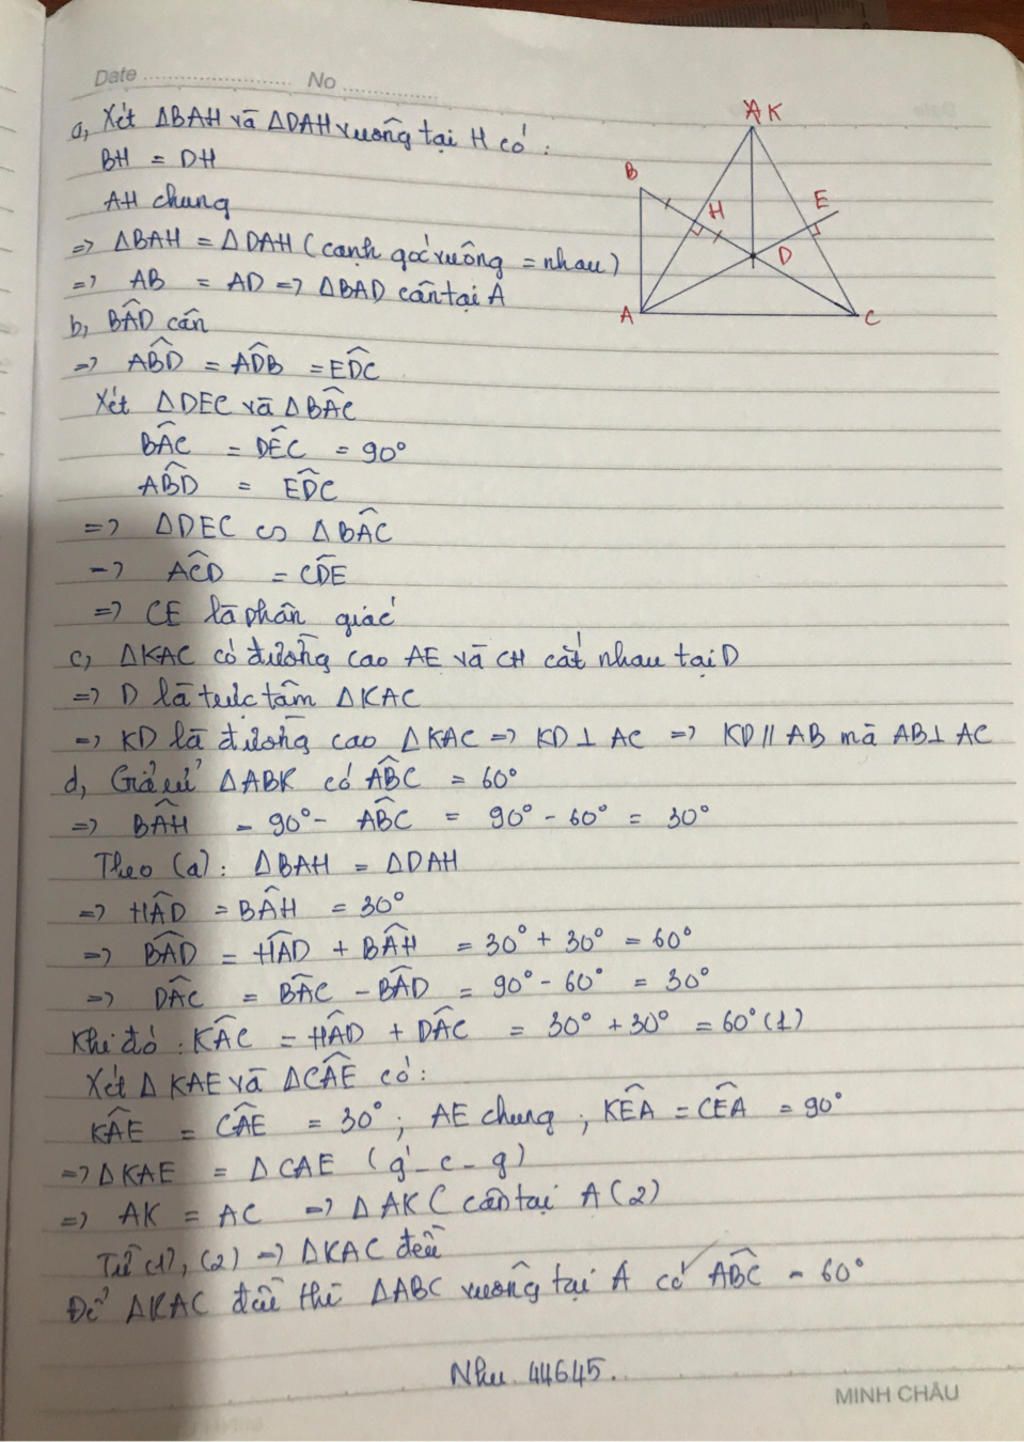 Date No
a, Xét ΔBAH và ΔDAH vuông tại H có:
BH = DH
AH chung
=> ΔBAH = ΔDAH (cạnh góc vuông = nhau)
=> AB = AD => ΔBAD cân tại A
b, BÂD cân
=> AB̂D = AD̂B = ED̂C
Xét ΔDEC và ΔBÂC
BÂC = DÊC = 90°
AB̂D = ED̂C
=> ΔDEC ∽ ΔBÂC
=> AĈD = CD̂E
=> CE là phân giác
c, ΔKAC có đường cao AE và CH cắt nhau tại D
=> D là trực tâm ΔKAC
=> KD là đường cao ΔKAC => KD ⊥ AC => KD // AB mà AB ⊥ AC
d, Giả sử ΔABK có AB̂C = 60°
=> BÂH = 90° - AB̂C = 90° - 60° = 30°
Theo (a): ΔBAH = ΔDAH
=> HÂD = BÂH = 30°
=> BÂD = HÂD + BÂH = 30° + 30° = 60°
=> DÂC = BÂC - BÂD = 90° - 60° = 30°
Khi đó: KÂC = HÂD + DÂC = 30° + 30° = 60° (1)
Xét ΔKAE và ΔCÂE có:
KÂE = CÂE = 30°; AE chung; KÊA = CÊA = 90°
=> ΔKAE = ΔCAE (g - c - g)
=> AK = AC => ΔAKC cân tại A (2)
Từ (1), (2) => ΔKAC đều
Để ΔKAC đều thì ΔABC vuông tại A có AB̂C = 60°
Như 44645.
MINH CHÂU
K
B
H
E
D
A
C